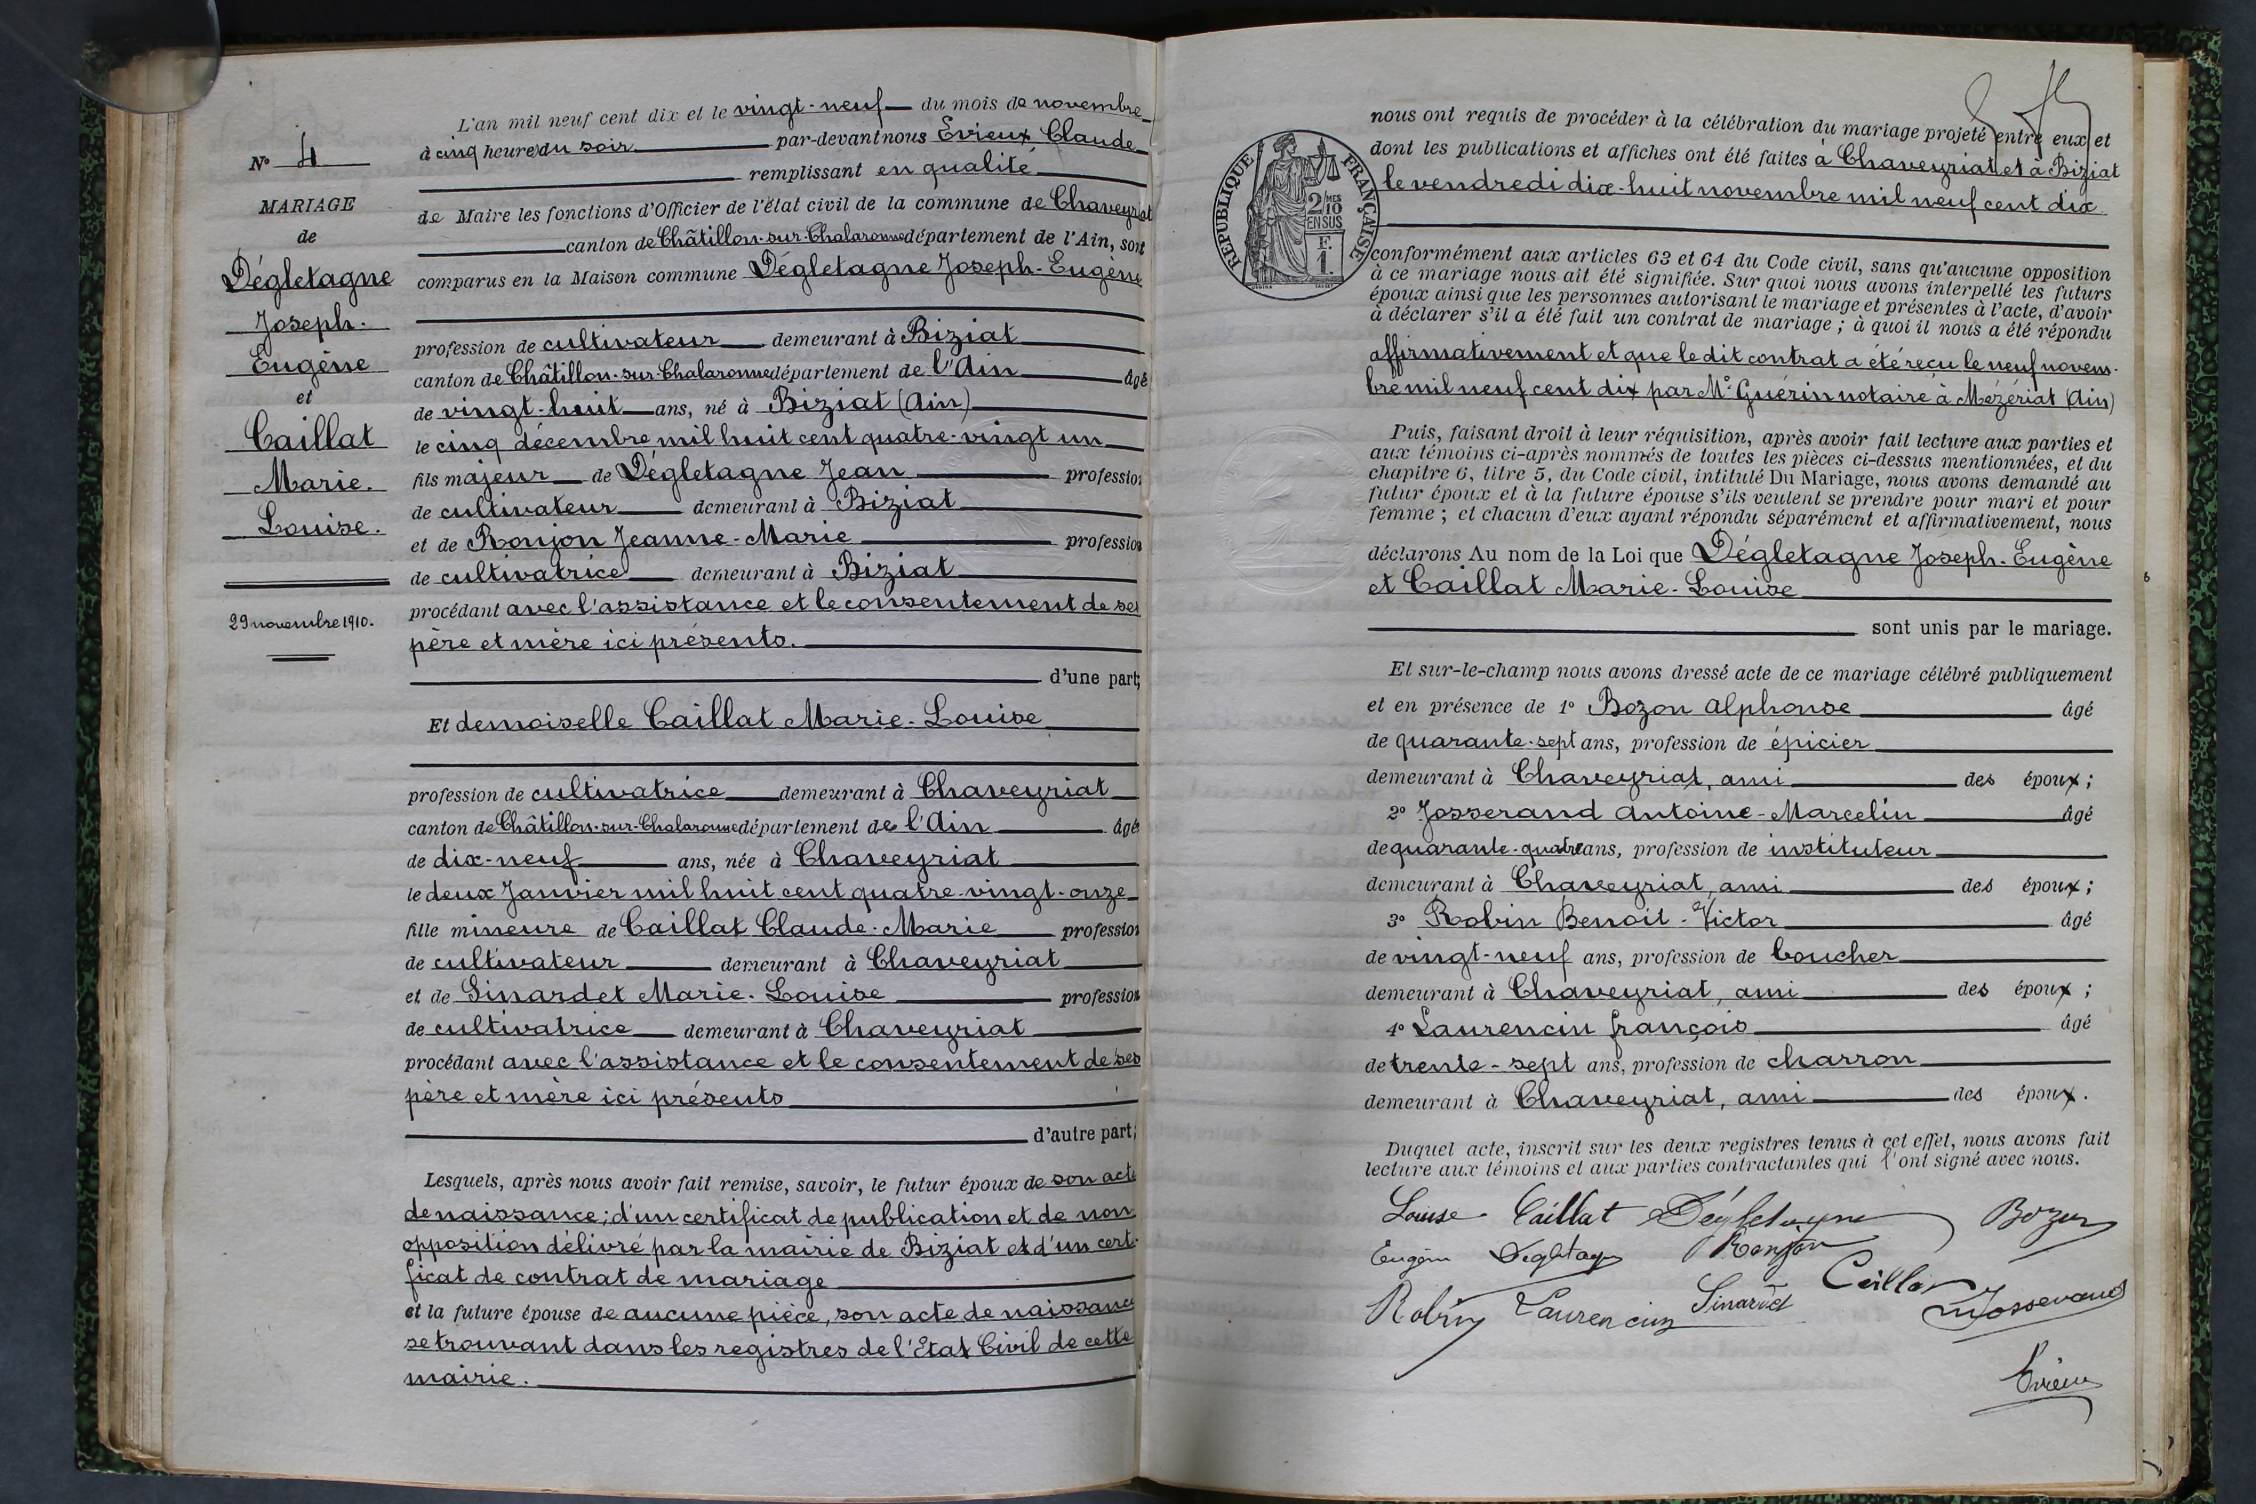 N° 4
MARIAGE
de
Dégletagne
Joseph.
Eugène
et
Caillat
Marie.
Louise.
29 novembre 1910.
L'an mil neuf cent dix et le vingt-neuf du mois de novembre
à cinq heures du soir par-devant nous Evieux Claude
remplissant en qualité
de Maire les fonctions d'Officier de l'état civil de la commune de Chaveyriat
canton de Châtillon-sur-Chalaronne département de l'Ain, sont
comparus en la Maison commune Dégletagne Joseph-Eugène
profession de cultivateur demeurant à Biziat
canton de Châtillon-sur-Chalaronne département de l'Ain âgé
de vingt-huit ans, né à Biziat (Ain)
le cinq décembre mil huit cent quatre-vingt un
fils majeur de Dégletagne Jean profession
de cultivateur demeurant à Biziat
et de Ronjon Jeanne-Marie profession
de cultivatrice demeurant à Biziat
procédant avec l'assistance et le consentement de ses
père et mère ici présents.
d'une part;
Et demoiselle Caillat Marie-Louise
profession de cultivatrice demeurant à Chaveyriat
canton de Châtillon-sur-Chalaronne département de l'Ain âgé
de dix-neuf ans, née à Chaveyriat
le deux Janvier mil huit cent quatre-vingt-onze
fille mineure de Caillat Claude-Marie profession
de cultivateur demeurant à Chaveyriat
et de Sinardet Marie-Louise profession
de cultivatrice demeurant à Chaveyriat
procédant avec l'assistance et le consentement de ses
père et mère ici présents
d'autre part;
Lesquels, après nous avoir fait remise, savoir, le futur époux de son acte
de naissance; d'un certificat de publication et de non
opposition délivré par la mairie de Biziat et d'un certi-
ficat de contrat de mariage
et la future épouse de aucune pièce, son acte de naissance
se trouvant dans les registres de l'Etat Civil de cette
mairie.
RÉPUBLIQUE FRANÇAISE
2 MES
10
EN SUS
F.
1.
nous ont requis de procéder à la célébration du mariage projeté entre eux et
dont les publications et affiches ont été faites à Chaveyriat et à Biziat
le vendredi dix-huit novembre mil neuf cent dix
conformément aux articles 63 et 64 du Code civil, sans qu'aucune opposition
à ce mariage nous ait été signifiée. Sur quoi nous avons interpellé les futurs
époux ainsi que les personnes autorisant le mariage et présentes à l'acte, d'avoir
à déclarer s'il a été fait un contrat de mariage; à quoi il nous a été répondu
affirmativement et que le dit contrat a été reçu le neuf novem-
bre mil neuf cent dix par Me Guérin notaire à Mézériat (Ain)
Puis, faisant droit à leur réquisition, après avoir fait lecture aux parties et
aux témoins ci-après nommés de toutes les pièces ci-dessus mentionnées, et du
chapitre 6, titre 5, du Code civil, intitulé Du Mariage, nous avons demandé au
futur époux et à la future épouse s'ils veulent se prendre pour mari et pour
femme; et chacun d'eux ayant répondu séparément et affirmativement, nous
déclarons Au nom de la Loi que Dégletagne Joseph-Eugène
et Caillat Marie-Louise
sont unis par le mariage.
Et sur-le-champ nous avons dressé acte de ce mariage célébré publiquement
et en présence de 1° Bozon Alphonse âgé
de quarante-sept ans, profession de épicier
demeurant à Chaveyriat, ami des époux;
2° Josserand Antoine-Marcelin âgé
de quarante-quatre ans, profession de instituteur
demeurant à Chaveyriat, ami des époux;
3° Robin Benoit-Victor âgé
de vingt-neuf ans, profession de boucher
demeurant à Chaveyriat, ami des époux;
4° Laurencin françois âgé
de trente-sept ans, profession de charron
demeurant à Chaveyriat, ami des époux.
Duquel acte, inscrit sur les deux registres tenus à cet effet, nous avons fait
lecture aux témoins et aux parties contractantes qui l'ont signé avec nous.
Louise Caillat Dégletagne Bozon
Eugène Dégletagne Ronjon
Robin Laurencin Sinardet Caillat Josserand
Evieux